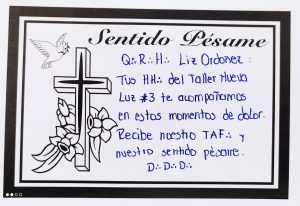 Sentido Pésame
Q∴R∴H∴ Liz Ordonez :
Tus HH∴ del Taller Nueva
Luz #3 te acompañamos
en estos momentos de dolor.
Recibe nuestro T.A.F∴ y
nuestro sentido pésame.
D∴D∴D∴